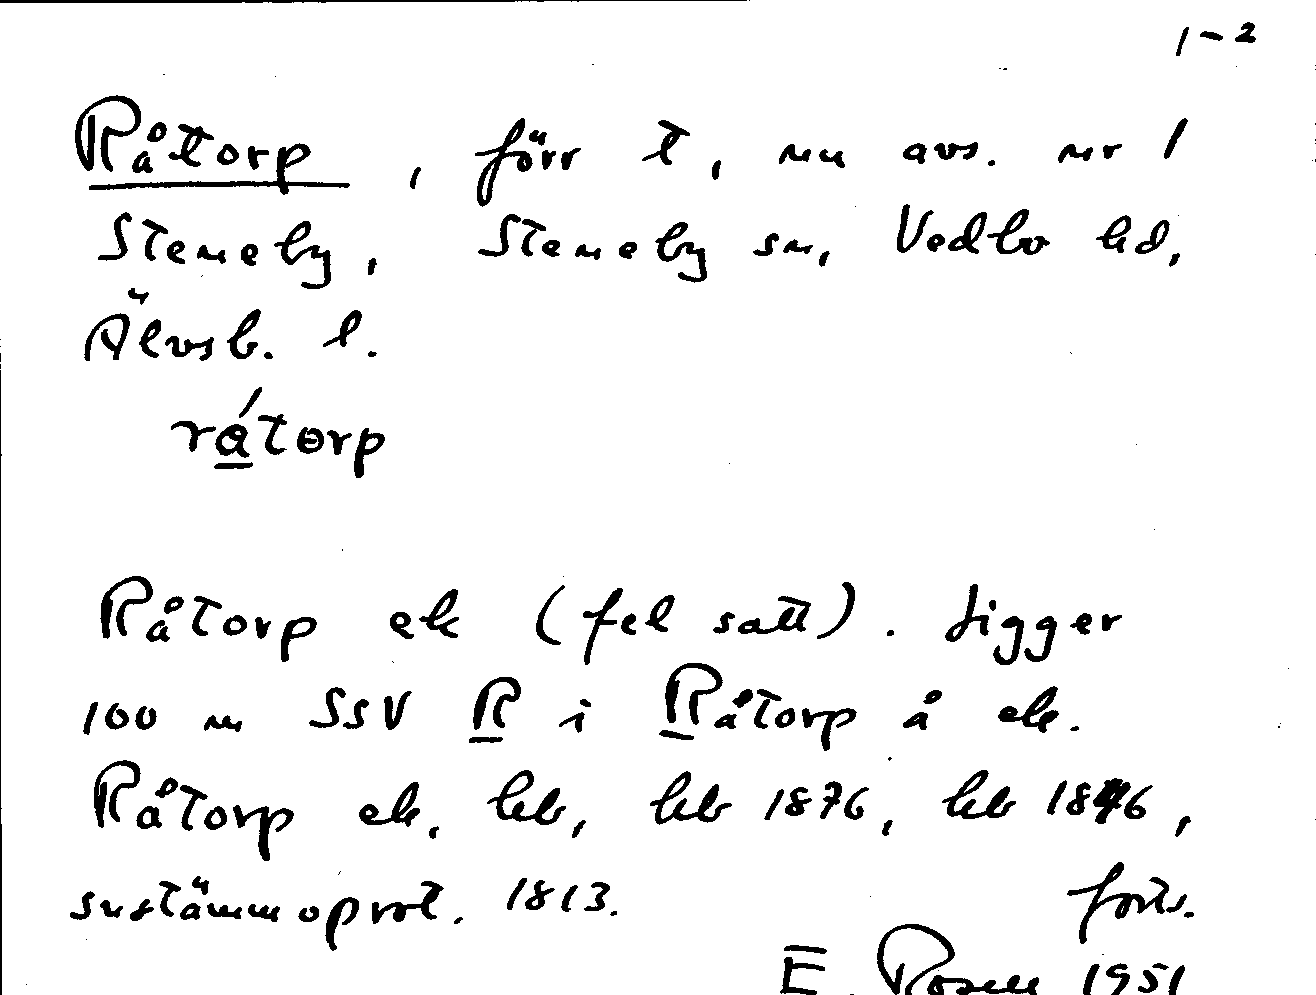 1-2
Råtorp, förr t, nu avs. nr 1
Steneby, Steneby sn, Vedbo hd,
Älvsb. l.
råtorp
Råtorp ek (fel satt). Ligger
100 m SSV R i Råtorp å ek.
Råtorp ek, hb, hb 1876, hb 1846,
snstämmoprot. 1813.
forts.
E. Rosell 1951